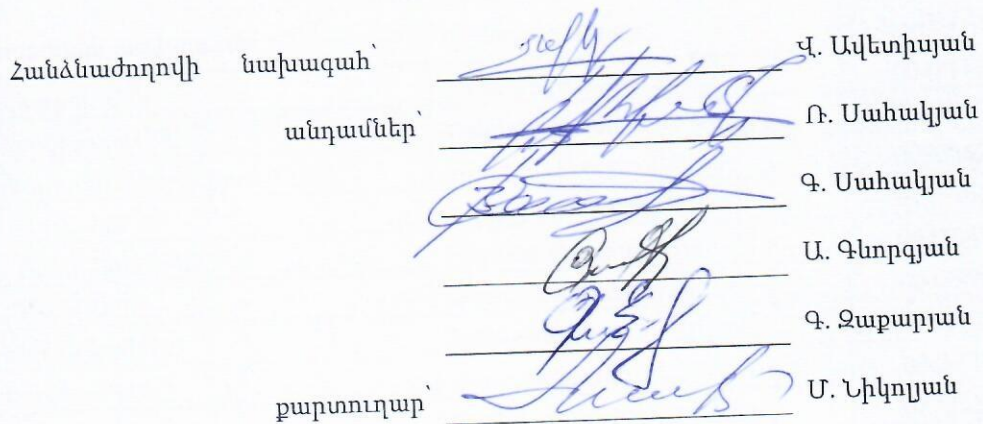 Հանձնաժողովի նախագահ՝ Վ. Ավետիսյան
անդամներ՝ Ռ. Սահակյան
Գ. Սահակյան
Ա. Գևորգյան
Գ. Զաքարյան
քարտուղար՝ Մ. Նիկոլյան